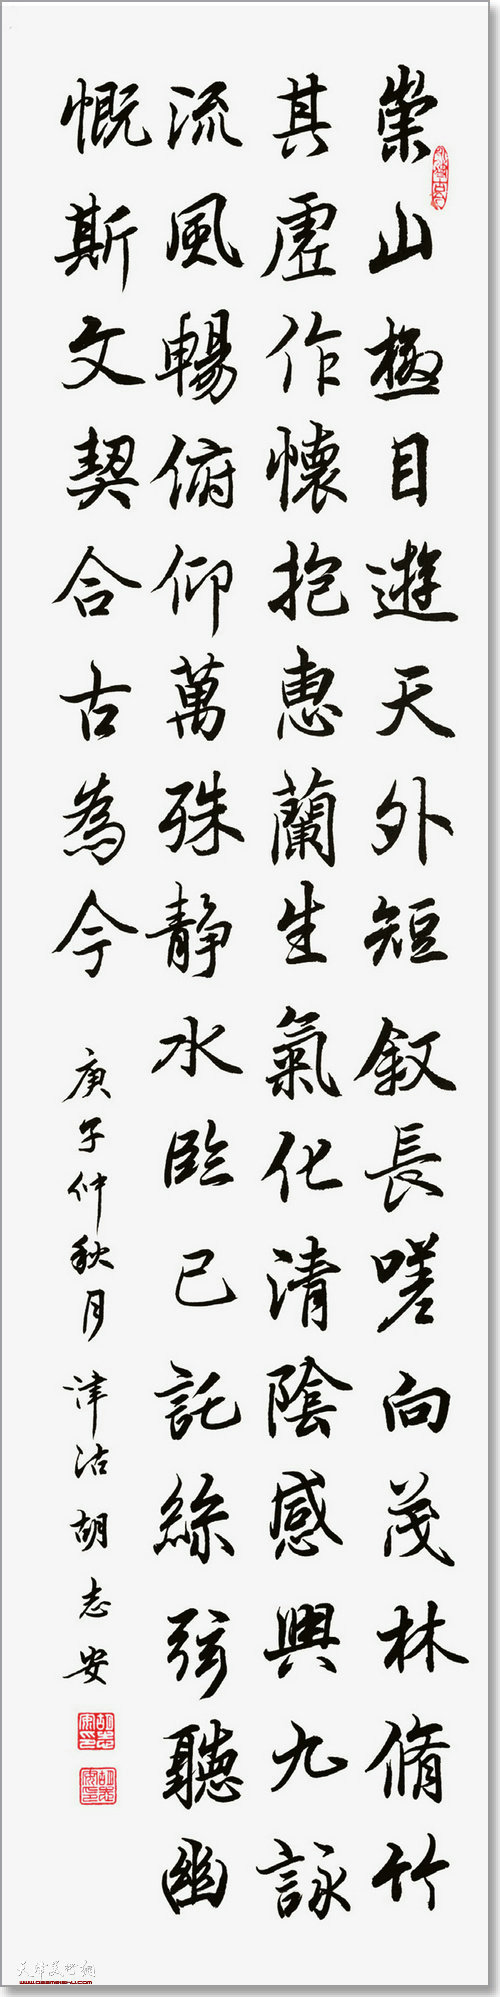 崇山極目遊天外短叙長嗟向茂林脩竹
其虛作懷抱惠蘭生氣化清陰感興九詠
流風暢俯仰萬殊靜水臨已託絲弦聽幽
慨斯文契合古為今
庚子仲秋月津沽胡志安
天津美术网